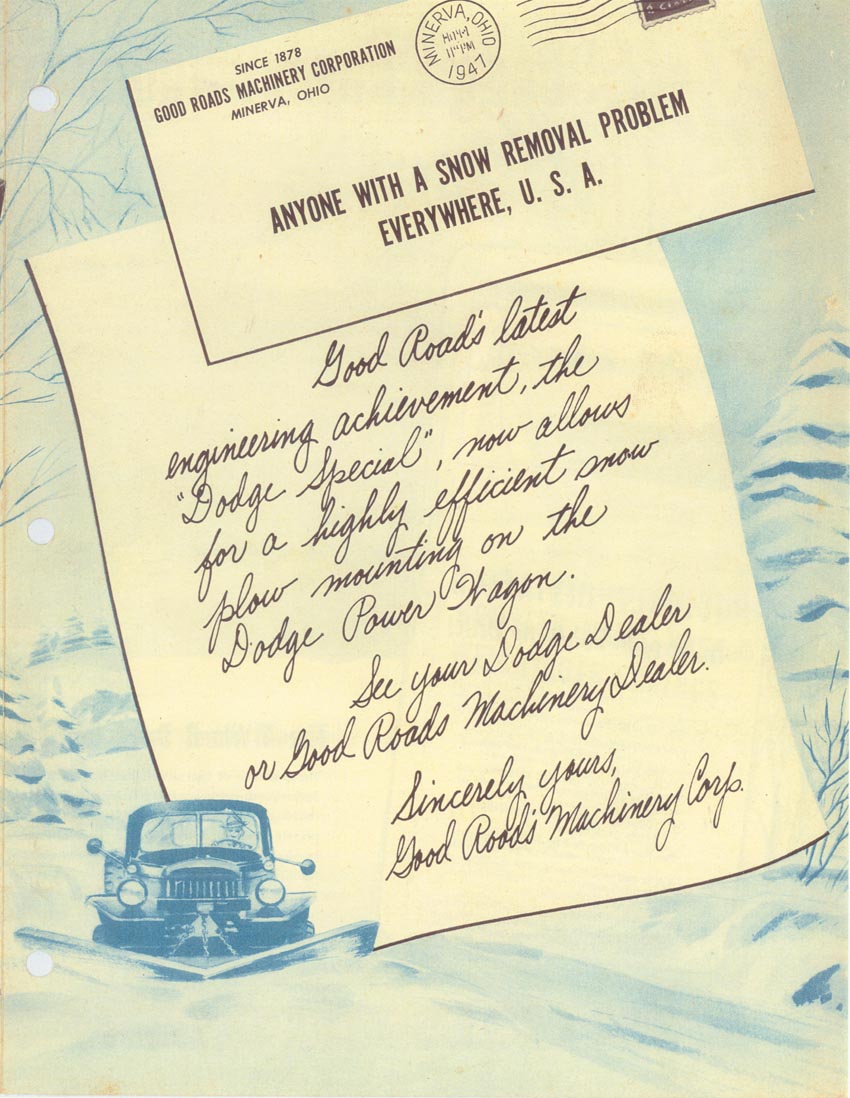 SINCE 1878
GOOD ROADS MACHINERY CORPORATION
MINERVA, OHIO
MINERVA, OHIO
1947
ANYONE WITH A SNOW REMOVAL PROBLEM
EVERYWHERE, U. S. A.
Good Road's latest
engineering achievement, the
"Dodge Special", now allows
for a highly efficient snow
plow mounting on the
Dodge Power Wagon.
See your Dodge Dealer
or Good Roads Machinery Dealer.
Sincerely yours,
Good Roads Machinery Corp.